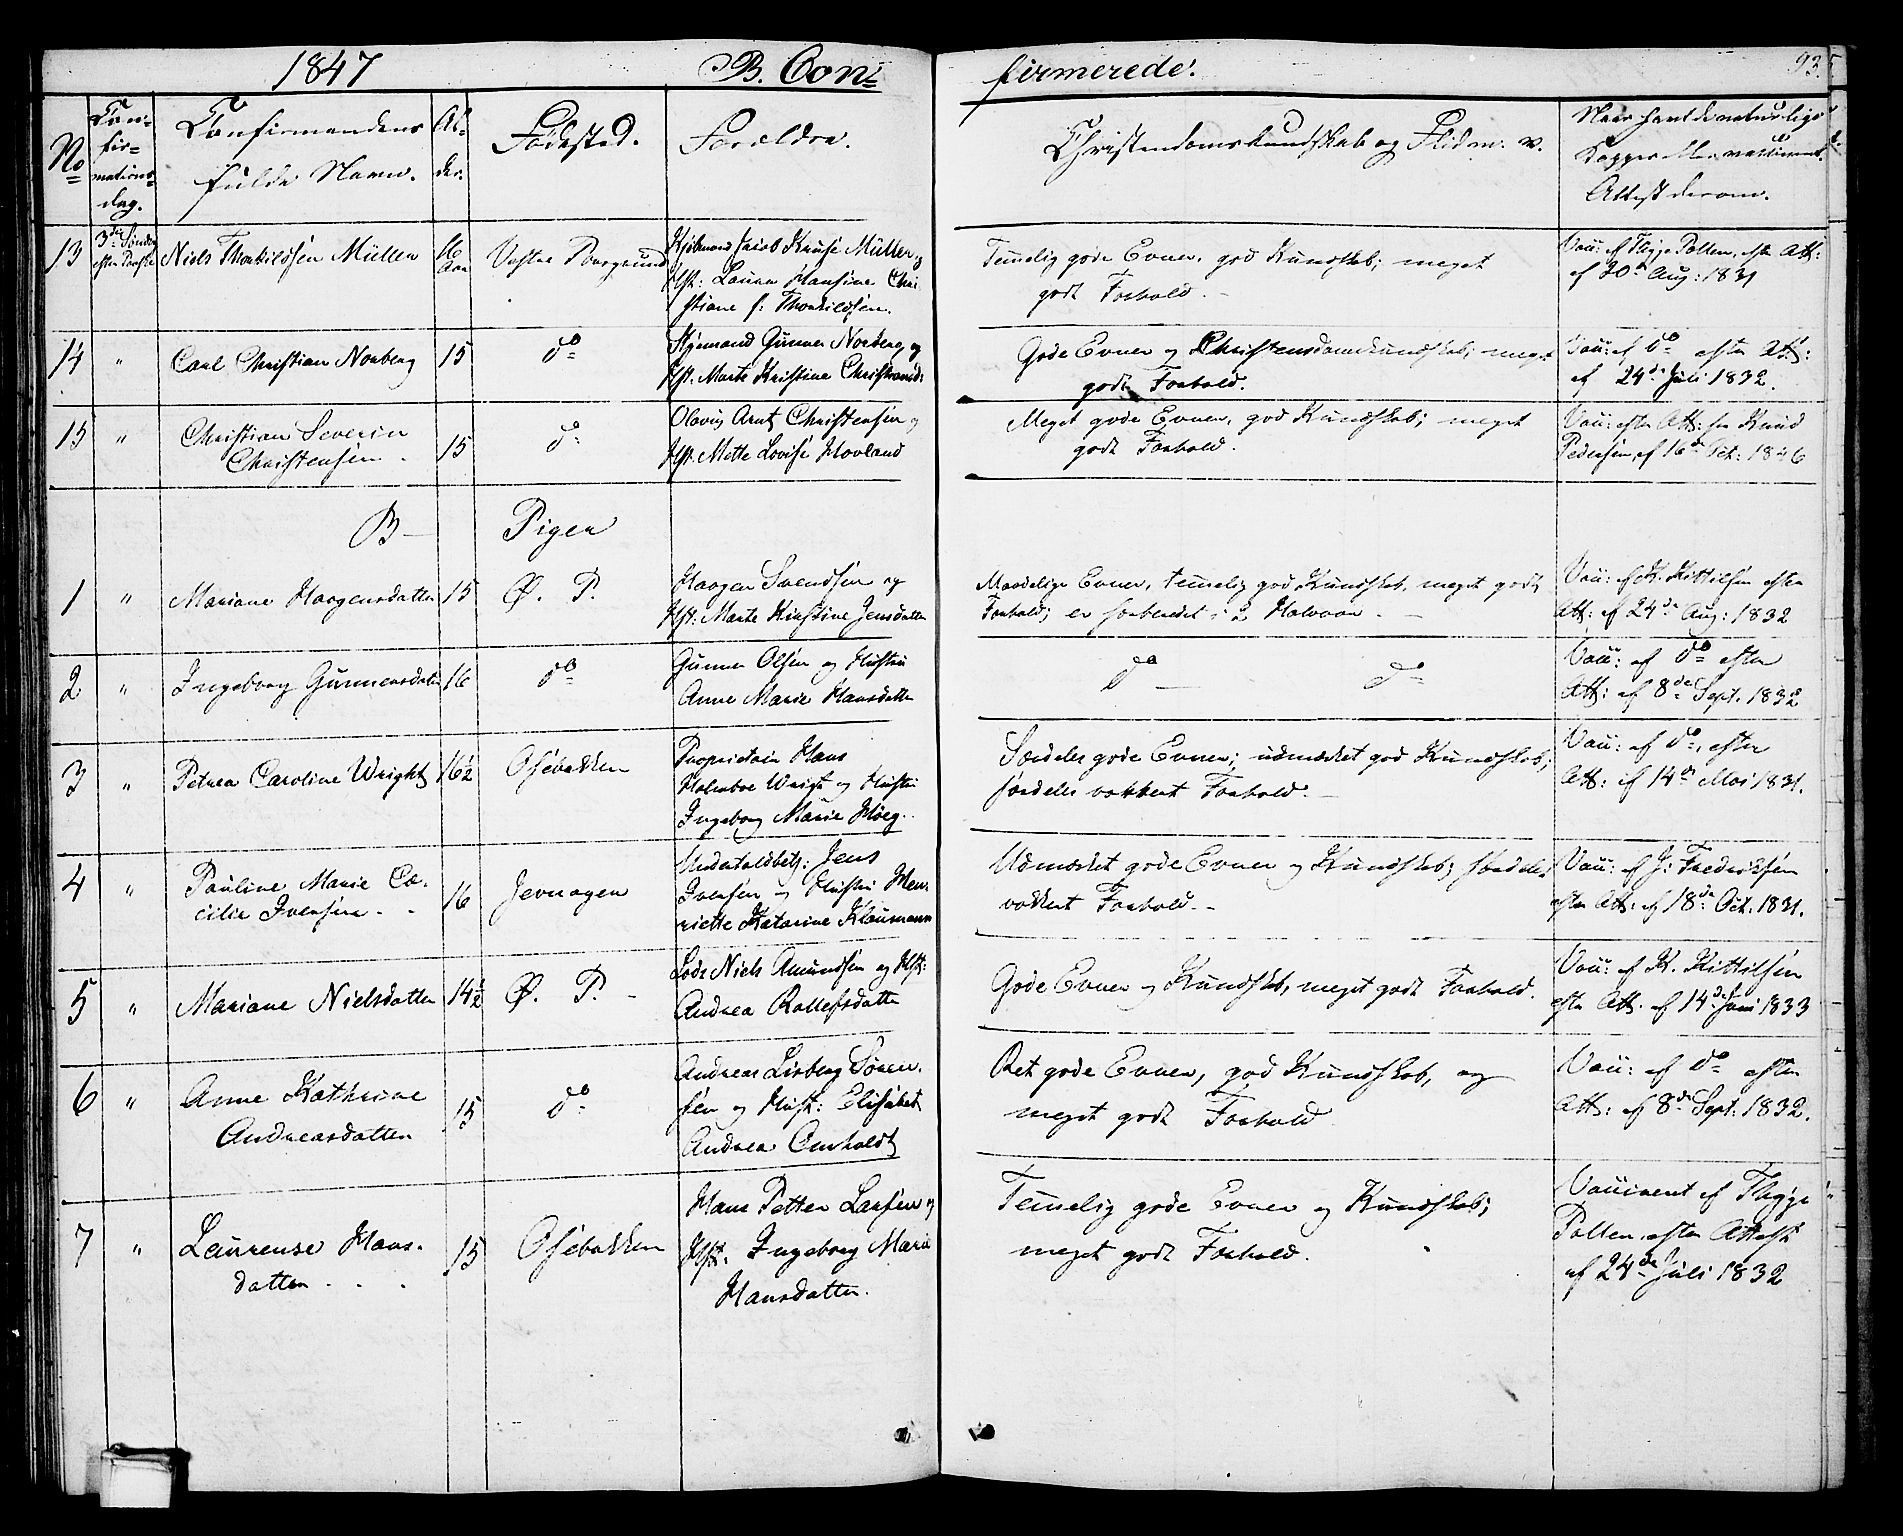 1847 B. Con=
firmerede.
93.
No
Con-
fir-
mations-
dag.
Confirmandens
fulde Navn.
Al-
der.
Fødested.
Forældre.
Christendomskundskab og Flid m. v.
Naar havt de naturlige
Kopper eller vaccineret.
Attest derom.
13 3die Søndag
efter Paaske Niels Thorkildsen Müller 16
Aar Vestre Porsgrund Kjøbmand Jacob Kruse Müller og
Hst: Laura Hansine Chri-
stiane f: Thorkildsen.
Temmelig gode Evner, god Kundskab; meget
godt Forhold. -
Vac: af Thyge Polten, efter Att:
af 30te Aug: 1831
14 " Carl Christian Norberg 15 do Skjemand Gunner Norberg og
Hst. Marte Kristine Christiansd:
Gode Evner og Christendomskundskab; meget
godt Forhold.
Vac: af do efter Att:
af 24de Juli 1832.
15 " Christian Severin
Christensen. 15 do Olavus Arnt Christensen og
Hst. Mette Lovise Hovland
Meget gode Evner, god Kundskab; meget
godt Forhold.
Vac: efter Att: fra Knud
Pedersen af 16de Oct: 1846
B - Piger
1 " Mariane Haagensdatter 15 Ø. P. Haagen Svendsen og
Hst: Marte Kirstine Jensdatter
Maadelige Evner, temmelig god Kundskab, meget godt
Forhold; er forberedet i 2 Halvaar. -
Vac: af K. Kittilsen efter
Att: af 24de Aug: 1832
2 " Ingeborg Gunnersdatter 16 do Gunner Olsen og Hustru
Anne Marie Hansdatter
do - do
Vac: af do efter
Att: af 8de Sept. 1832
3 " Petrea Caroline Wright 16½ Osebakken Proprietair Hans
Holmboe Wright og Hustru
Ingeborg Marie Høeg.
Særdeles gode Evner; udmærket god Kundskab;
særdeles vakkert Forhold. -
Vac: af do, efter
Att: af 14de Mai 1831.
4 " Pauline Marie Ce-
cilie Iversen. 16 Jernagen Undertoldbetj: Jens
Iversen og Hustru Hen-
riette Katarine Klaumann
Udmærket gode Evner og Kundskab; særdeles
vakkert Forhold. -
Vac: af J: Frederiksen
efter Att: af 18de Oct. 1831.
5 " Mariane Nielsdatter 14½ Ø. P. - Lods Niels Amundsen og Hst:
Andrea Rollefsdatter
Gode Evner og Kundskab, meget godt Forhold.
Vac: af K. Kittilsen
efter Att. af 14de Juni 1833
6 " Anne Kathrine
Andreasdatter 15 do Andreas Lisberg Søren-
sen og Hust: Elisabet
Andrea Omholdt
Ret gode Evner, god Kundskab, og
meget godt Forhold
Vac: af do efter
Att: af 8de Sept: 1832.
7 " Laurense Hans-
datter. 15 Osebakken Hans Petter Larsen og
Hst. Ingeborg Marie
Hansdatter.
Temmelig gode Evner og Kundskab;
meget godt Forhold.
Vaccineret af Thyge
Polten, efter Attest
af 24de Juli 1832